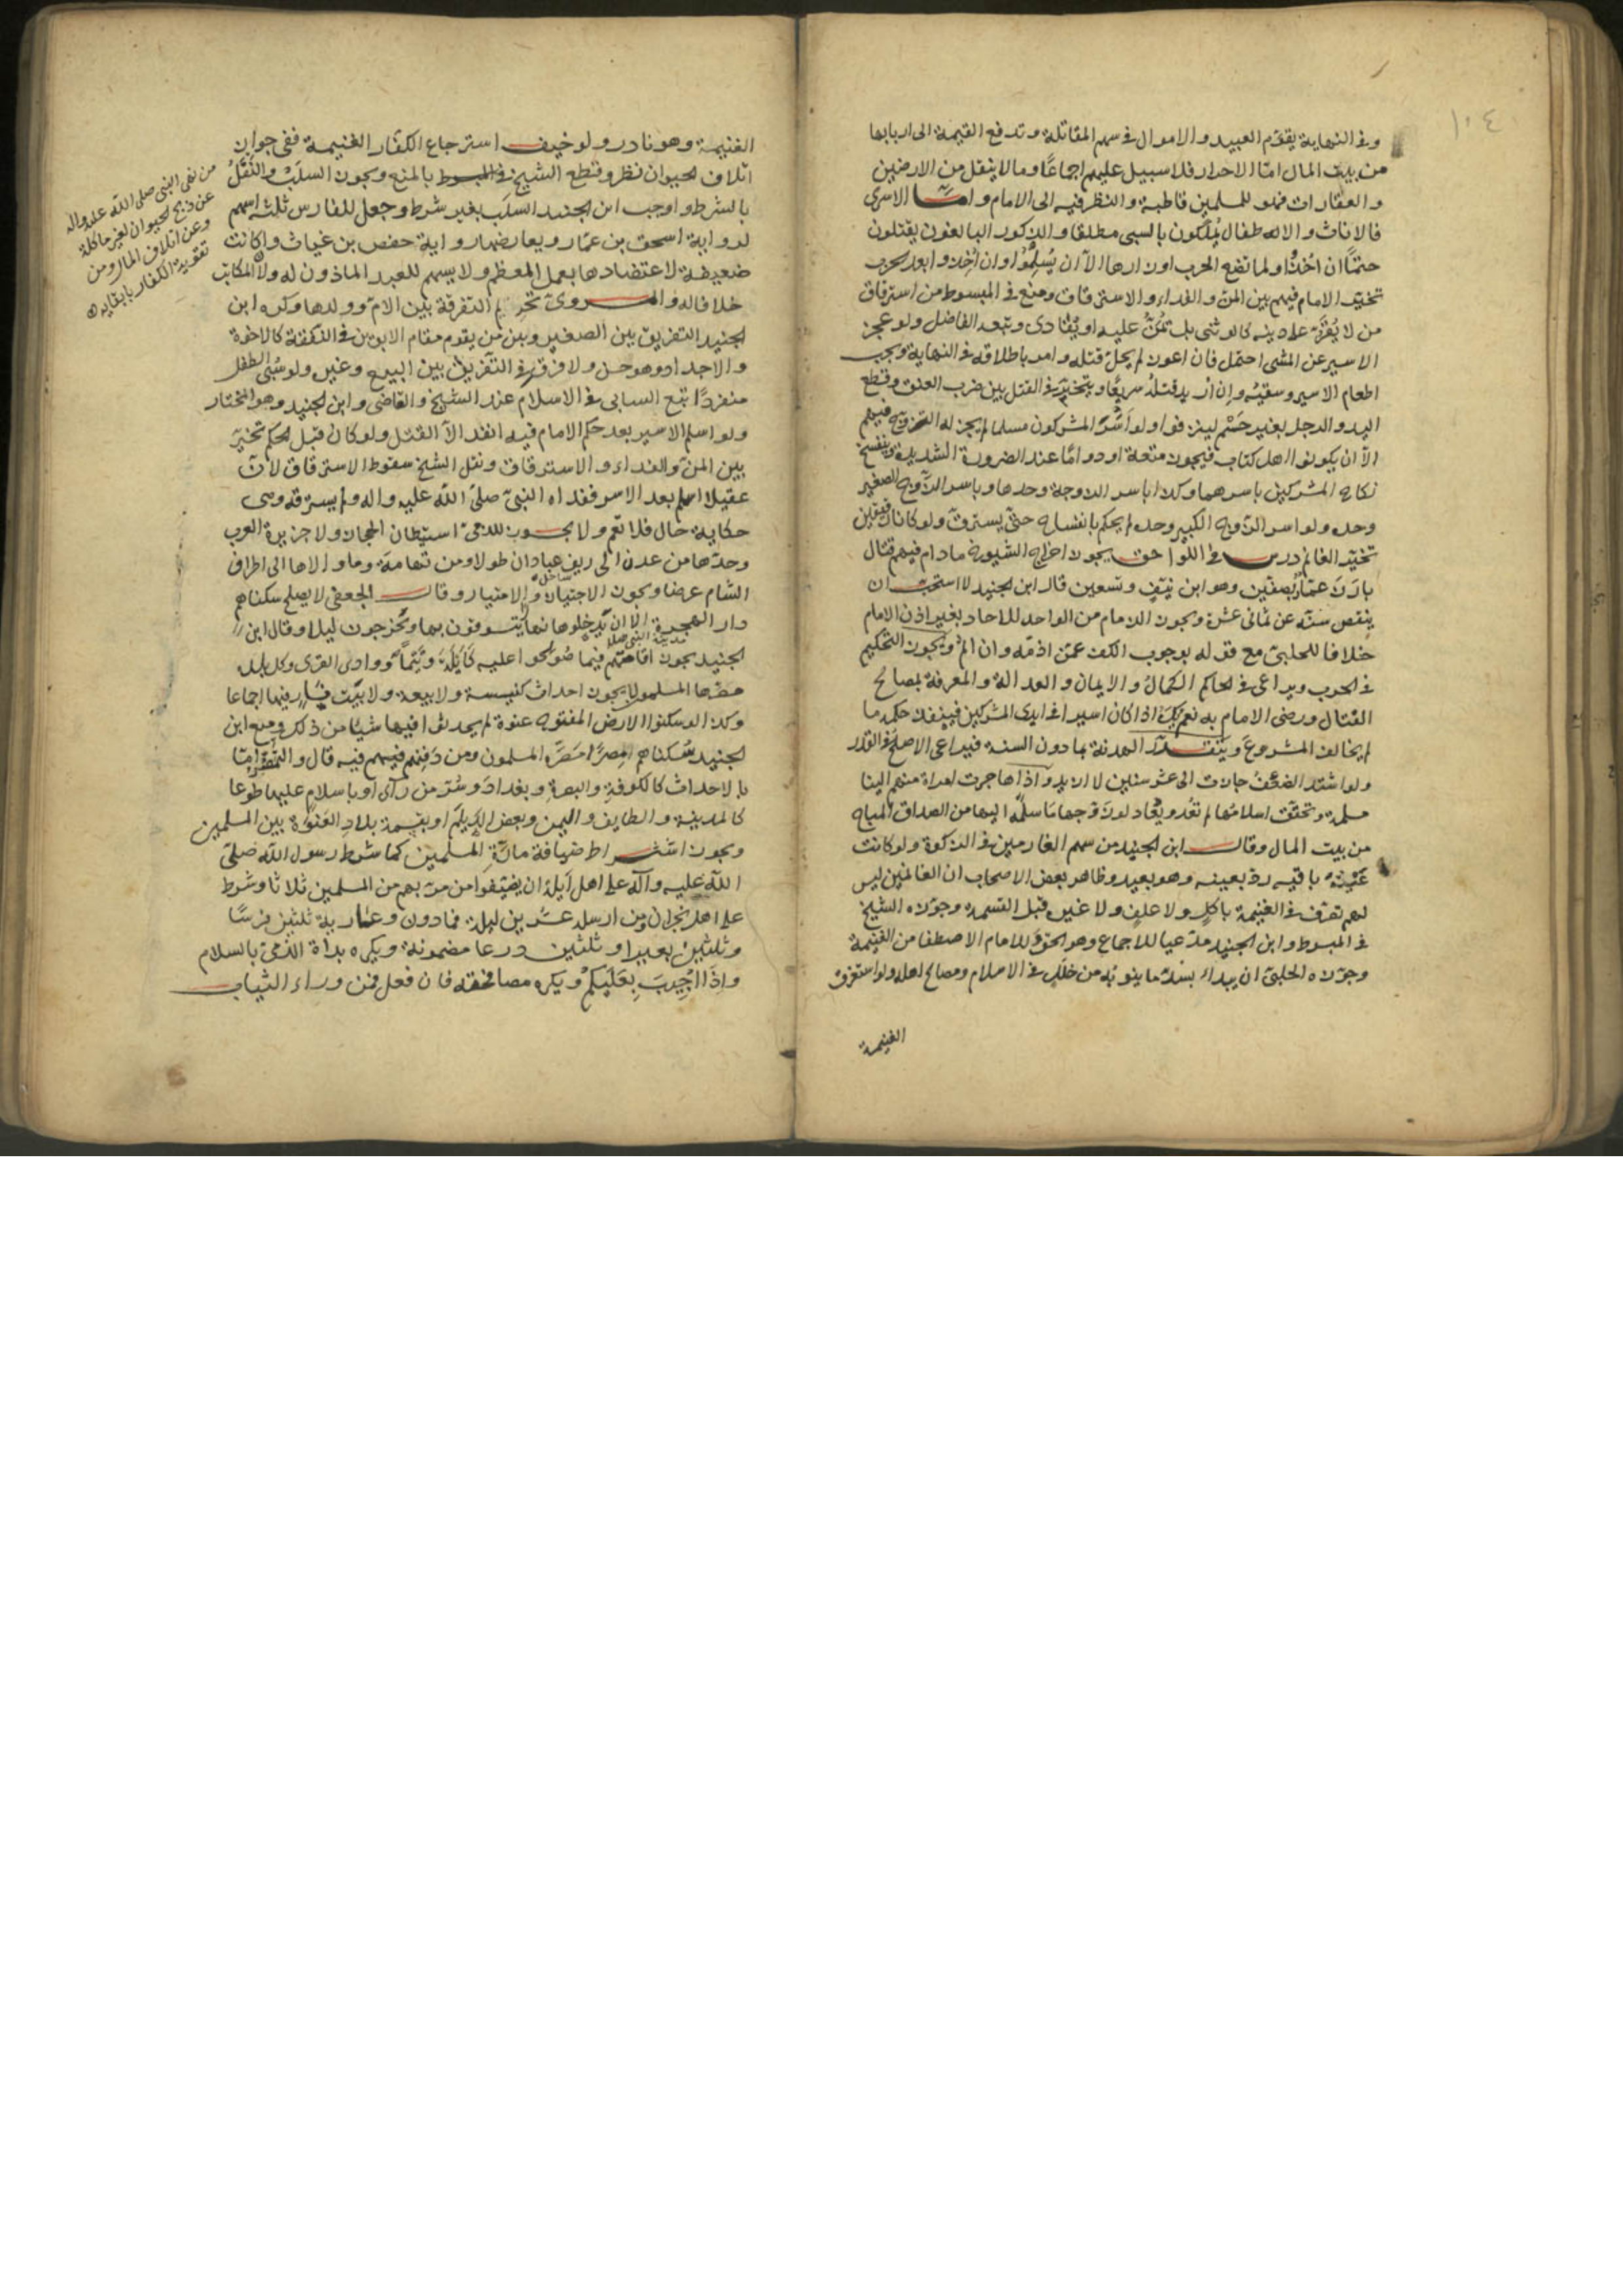 ١٠٤
وفي النهاية يقوّم العبيد والاموال في سهم المقاتلة وتدفع القيمة الى اربابها
من بيت المال امّا الاحرار فلا سبيل عليهم اجماعًا وما لا ينقل من الارضين
والعقارات فهو للمسلمين قاطبة والنظر فيه الى الامام وامّا الاسرى
فالاناث والاطفال يُملَكون بالسبي مطلقا والذكور البالغون يقتلون
حتمًا ان اُخذوا ولما تضع الحرب اوزارها الّا ان يُسلِموا وان اُخِذوا بعد الحرب
تخيّر الامام فيهم بين المنّ والفداء والاسترقاق ومنع في المبسوط من استرقاق
من لا يُقرّ على دينه كالوثني بل تمُنّ عليه او يُفادى وتبعه الفاضل ولو عجز
الاسير عن المشي احتمل فان اعوز لم يحلّ قتله وامر باطلاقه في النهاية ويجب
اطعام الاسير وسقيُه وإن اُريد قتلُه سريعًا ويتخيّر في القتل بين ضرب العنق وقطع
اليد والرجل بغير حَسْم لينزفوا ولو اَسَرَ المشركون مسلما لم يجز له التزويج فيهم
الّا ان يكونوا اهل كتاب فيجوز متعة او دوامًا عند الضرورة الشديدة وينفسخ
نكاح المشركين باسرهما وكذا باسر الزوجة وحدها وباسر الزوج الصغير
وحده ولو اسر الزوج الكبير وحده لم يحكم بانفساخه حتّى يسترقّ ولو كانا رقيقين
تخيّر الغانم درس في اللواحق يجوز اخراج الشيوخ ما دام فيهم قتال
بارَزَ عمّارٌ بصفّين وهو ابن نيّفٍ وتسعين قال ابن الجنيد لا استحبّ ان
ينقص سنّه عن ثماني عشرة ويجوز الذمام من الواحد للآحاد بغير اذن الامام
خلافا للحلبيّ مع قوله بوجوب الكفّ عمّن اذمّه وان اثم ويجوز التحكيم
في الحرب ويراعى في الحاكم الكمالُ والايمان والعدالة والمعرفة بمصالح
القتال ورضى الامام به نعم يكره اذا كان اسيرا في ايدي المشركين فينفذ حكمه ما
لم يخالف المشروعَ ويتقدّر الهدنة بما دون السنة فيراعى الاصلح في القدر
ولو اشتد الضعفُ جازت الى عشر سنين لا ازيد واذا هاجرت امراة منهم الينا
مسلمة وتحقّق اسلامُها لم تعُد ويُعاد لزوجها ما سلّمه اليها من الصداق المباح
من بيت المال وقال ابن الجنيد من سهم الغارمين في الزكوة ولو كانت
عَيْنُهُ باقيه ردّ بعينه وهو بعيد وظاهر بعض الاصحاب ان الغانمين ليس
لهم تصرّف في الغنيمة باكلٍ ولا علفٍ ولا غيره قبل القسمة وجوّزه الشيخ
في المبسوط وابن الجنيد مدّعيا للاجماع وهو الحقّ وللامام الاصطفا من الغنيمة
وجوّزه الحلبيّ ان يبداء بسدّ ما ينوبُه من خللٍ في الاسلام ومصالح اهله ولو استغرق
الغنيمة
الغنيمة وهو نادر ولو خيف استرجاع الكفّار الغنيمة ففي جواز
اتلاف الحيوان نظر وقطع الشيخ في المبسوط بالمنع ويجوز السلَبُ والنَّفَلُ
بالشرط واوجب ابن الجنيد السلَب بغير شرط وجعل للفارس ثلثة اسهم
لرواية اسحق بن عمّار ويعارضها رواية حفص بن غياث وان كانت
ضعيفة لاعتضادها بعمل المعظم ولا يسهم للعبد الماذون له ولا المكاتب
خلافا له والمروىّ تحريم التفرقة بين الامّ وولدها وكره ابن
الجنيد التفريق بين الصغير وبين من يقوم مقام الابوين في الشفقة كالاخوة
والاجداد وهو حسن ولا فرق في التفريق بين البيع وغيره ولو سُبِي الطفل
منفردًا تبع السابي في الاسلام عند الشيخ والقاضي وابن الجنيد وهو المختار
ولو اسلم الاسير بعد حكم الامام فيه انفذ الّا القتل ولو كان قبل الحكم تخيّر
بين المنّ والفداء والاسترقاق ونقل الشيخ سقوط الاسترقاق لانّ
عقيلا اسلم بعد الاسر ففداه النبيّ صلىّ اللّه عليه واله ولم يسترقه وهي
حكاية حال فلا تعم ولا يجوز للذمىّ استيطان الحجاز ولا جزيرة العرب
وحدّها من عدن الى ريف عبادان طولا ومن تهامة وما والاها الى اطراف
الشام عرضا ويجوز الاجتياز والامتيار وقال الجعفي لا يصلح سكناهم
دار الهجرة الا ان يدخلوها نهارا يتسوّقون بها ويخرجون ليلا وقال ابن
الجنيد يجوز اقامتهم فيما صُولحوا عليه كأيلة وتيما ووادي القرى وكل بلد
مصّرها المسلمون لا يجوز احداث كنيسة ولا بيعة ولا بيت نار فيها اجماعا
وكذا لو سكنوا الارض المفتوحة عنوة لم يحدثوا فيها شيئا من ذلك ومنع ابن
الجنيد سُكناهم مِصرًا مَصَّره المسلمون ومن دَفِنهم فيه قال والتمصّر امّا
بالاحداث كالكوفة والبصرة وبغداد وسُرّ من رآى او باسلام عليها طوعًا
كالمدينة والطايف واليمن وبعض الديلم او بقسمة بلاد العَنْوَة بين المسلمين
ويجوز اشتراط ضيافة مارّة المسلمين كما شرط رسول اللّه صلىّ
اللّه عليه وآله على اهل اَيلة ان يضيّفوا من مرّ بهم من المسلمين ثلاثا وشرط
على اهل نجران من ارسله عشرين ليلة فما دون وعارية ثلثين فرسًا
وثلثين بعيرا وثلثين درعا مضمونة ويكره بداة الذمّي بالسلام
واذا اُجِيبَ بِعَلَيكُمْ ويكره مصافحته فان فعل فمن وراء الثياب
من نهى النبي صلى اللّه عليه واله
عن ذبح الحيوان لغير ماكلة
وعن اتلاف المال ومن
تقوية الكفار بابقايه